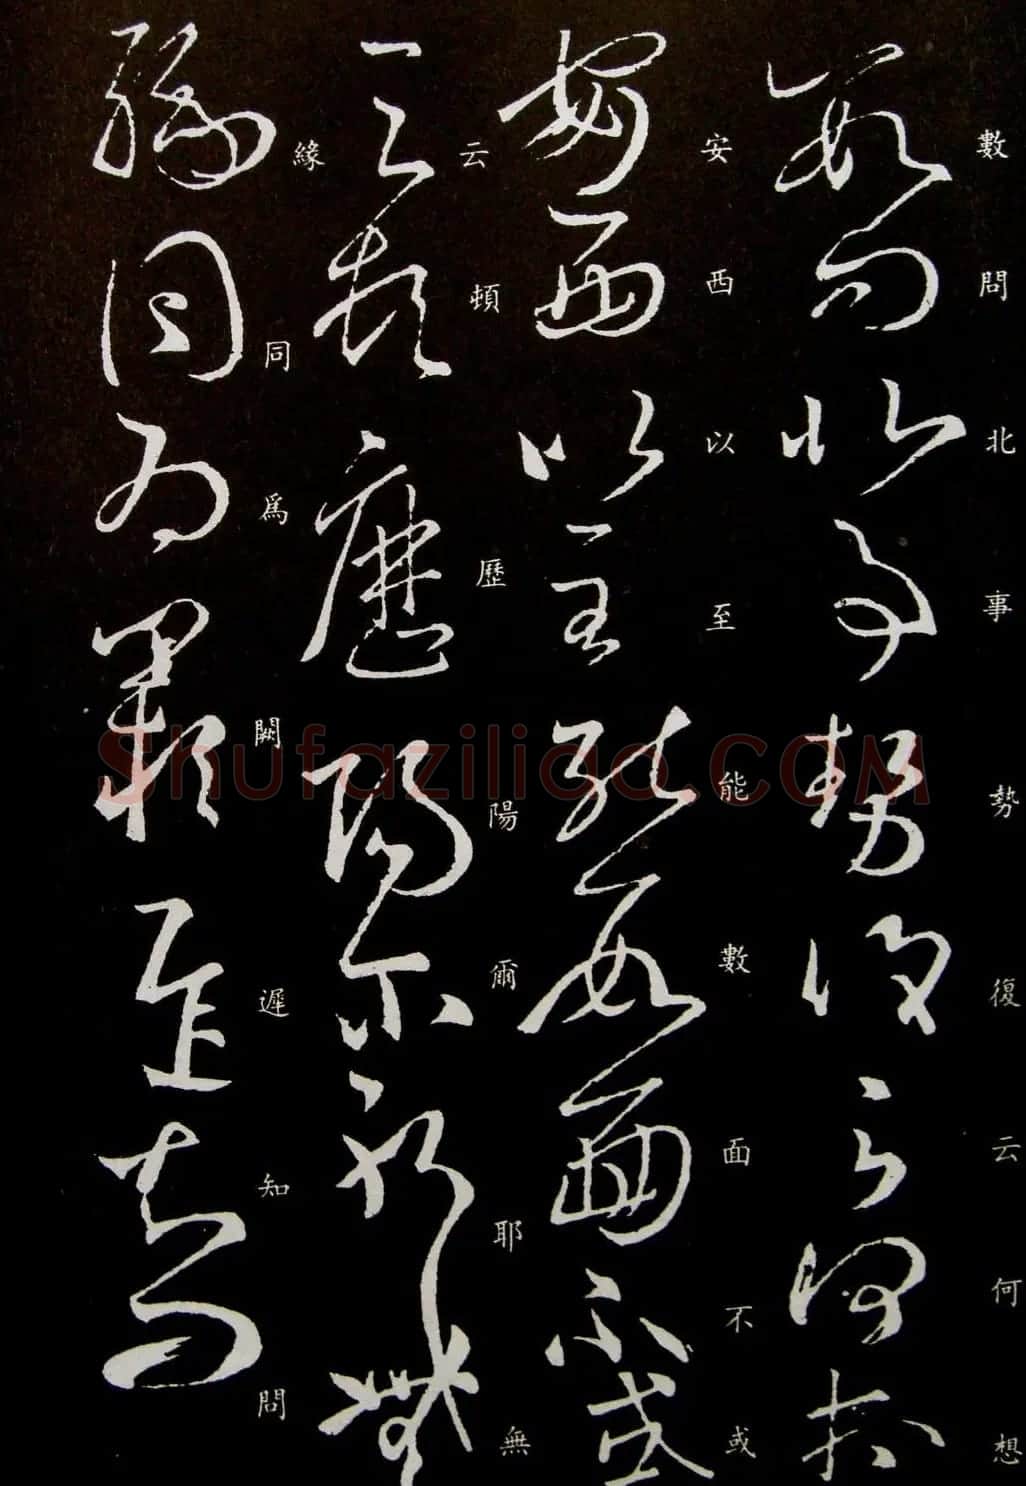 數問北事勢復云何想
安西以至能數面不或
云頓歷陽爾耶無
緣同為闕遲知問
Shufaziliao.COM